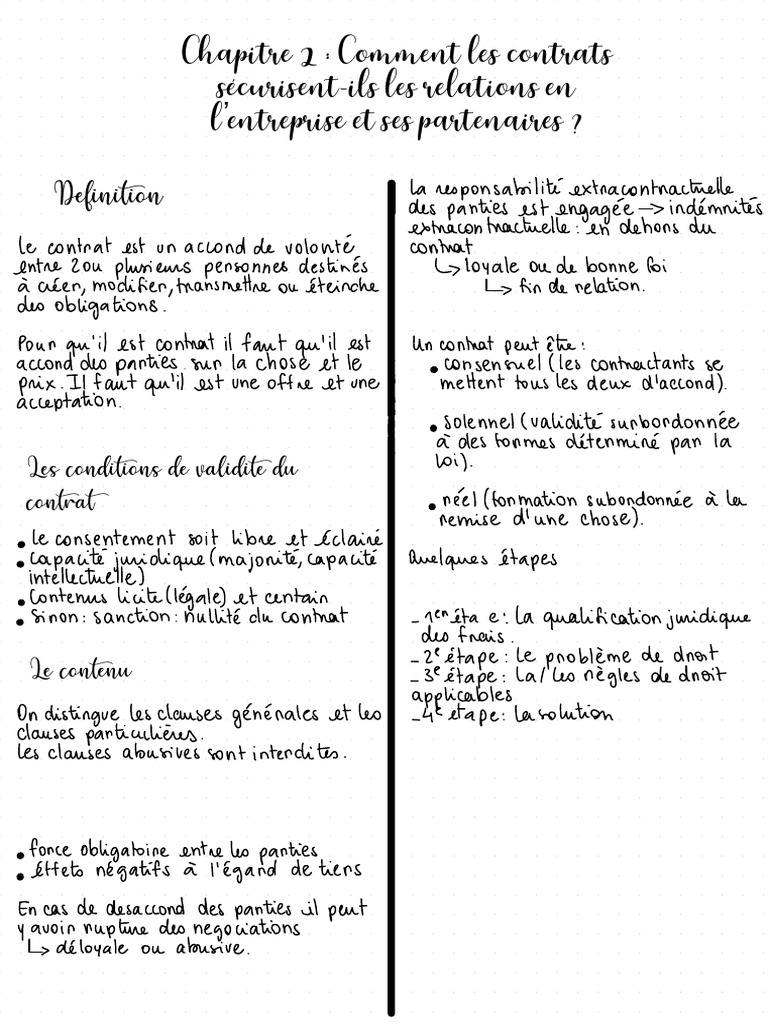 Chapitre 2 : Comment les contrats
sécurisent-ils les relations en
l'entreprise et ses partenaires ?
Definition
Le contrat est un accond de volonté
entre 2 ou plusieurs personnes destinés
à créer, modifier, transmettre ou éteinche
des obligations.
Pour qu'il est contrat il faut qu'il est
accond des parties sur la chose et le
prix. Il faut qu'il est une offre et une
acceptation.
Les conditions de validite du
contrat
• le consentement soit libre et éclairé
• capacité juridique (majorité, capacité
intellectuelle)
• Contenus licite (légale) et certain
• Sinon : sanction : nullité du contrat
Le contenu
On distingue les clauses générales et les
clauses particulières.
les clauses abusives sont interdites.
• force obligatoire entre les parties
• éffets négatifs à l'égard de tiers
En cas de desaccond des parties il peut
y avoir rupture des negociations
↳ déloyale ou abusive.
La responsabilité extracontractuelle
des parties est engagée → indémnités
extracontractuelle : en dehors du
contrat
↳ loyale ou de bonne foi
↳ fin de relation.
Un contrat peut être :
• consensuel (les contractants se
mettent tous les deux d'accond).
• solennel (validité surbordonnée
à des formes déterminé par la
loi).
• réel (formation subordonnée à la
remise d'une chose).
Quelques étapes
- 1er éta e : la qualification juridique
des frais.
- 2e étape : le problème de droit
- 3e étape : la/les règles de droit
applicables
- 4e etape : la solution